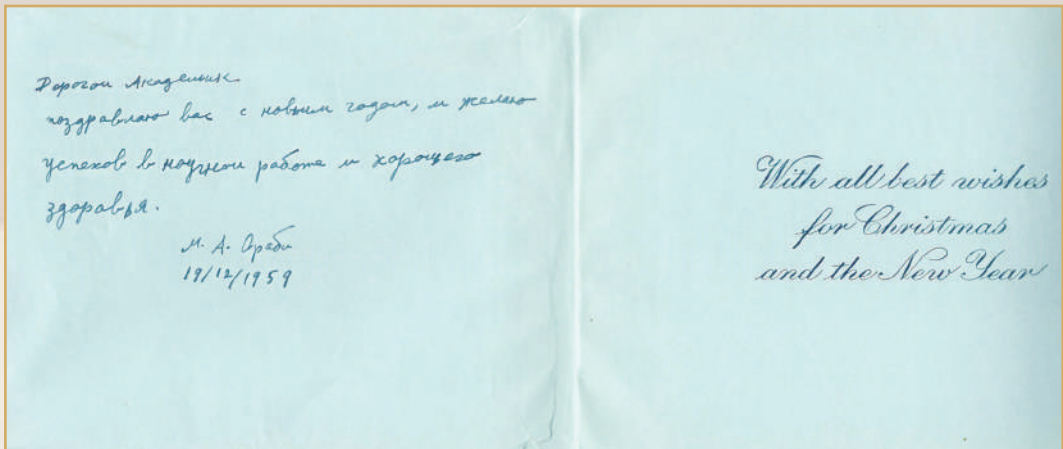 Дорогой Академик
поздравляю вас с новым годом, и желаю
успехов в научной работе и хорошего
здоровья.
М. А.
19/12/1959
With all best wishes
for Christmas
and the New Year